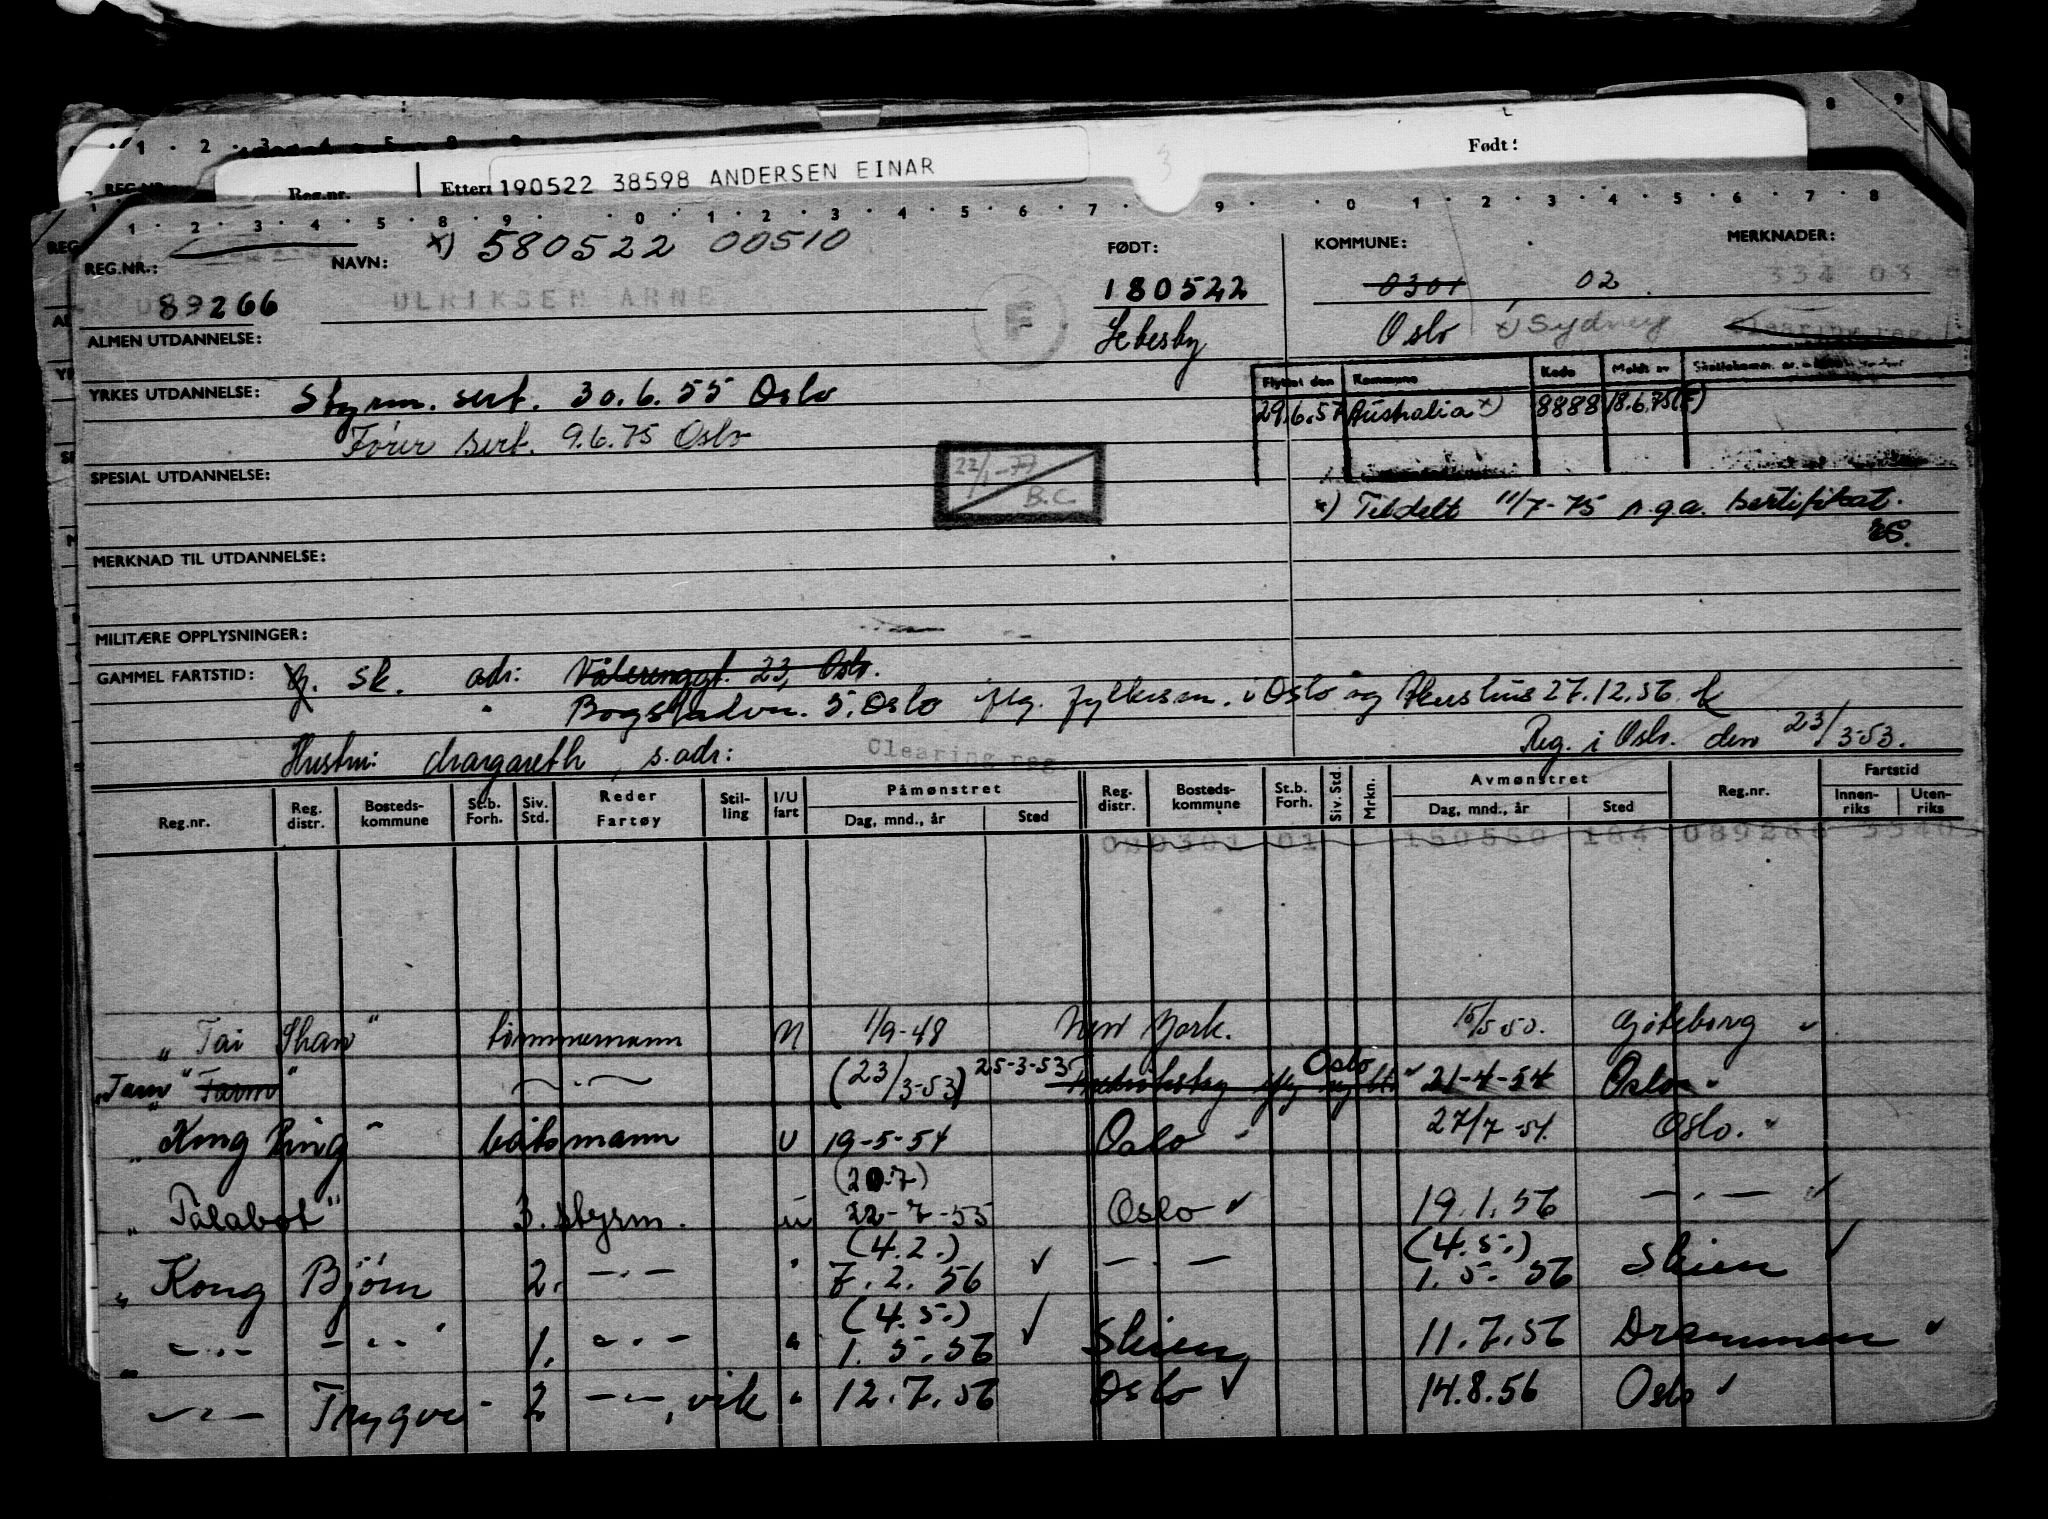 1 . 2 . 3 . 4 . 5 . 8 . 9 8 9
Reg.nr. Etter: 190522 38598 ANDERSEN EINAR 3 Født:
1 . 2 . 3 . 4 . 5 . 8 . 9 . 0 . 1 . 2 . 3 . 4 . 5 . 6 . 7 . 9 . 0 . 1 . 2 . 3 . 4 . 5 . 6 . 7 . 8
REG.NR.: NAVN: x) 580522 00510 FØDT: KOMMUNE: MERKNADER:
89266 ULRIKSEN ARNE F 180522 0301 02 334 03
ALMEN UTDANNELSE: Lebesby Oslo x) Sydney Clearing reg.
Flyttet den Kommune Kode Meldt av
YRKES UTDANNELSE: Styrm. sert. 30.6.55 Oslo 29.6.57 Australia x) 8888 18.6.75 (F)
Fører sert. 9.6.75 Oslo
SPESIAL UTDANNELSE: 22/1-77 B.C.
x) Tildelt 11/7-75 p.g.a. sertifikat.
ES.
MERKNAD TIL UTDANNELSE:
MILITÆRE OPPLYSNINGER:
GAMMEL FARTSTID: sk. adr: Vålerenggt. 23, Oslo.
" Bogstadvn. 5. Oslo iflg. fylkesm. i Oslo og Akershus 27.12.56.
Hustru: Margareth, s. adr: Clearing reg Reg. i Oslo. den 23/3-53.
Reg.nr. Reg. distr. Bosteds- kommune St.b. Forh. Siv. Std. Reder Fartøy Stil- ling I/U fart Påmønstret Dag, mnd., år Sted Reg. distr. Bosteds- kommune St.b. Forh. Siv. Std. Mrkn. Avmønstret Dag, mnd., år Sted Reg.nr. Fartstid Innen- riks Uten- riks
030301 01 150550 184 089266 3540
" Tai Shan" tømmermann U 1/9-48 New York. 15/5 50. Gøteborg
"Tam" Farm" — . — (23/3-53) 25-3-53 Oslo 21-4-54 Oslo
" Kong Ring" båtsmann U 19-5-54 Oslo 27/7-54. Oslo.
(20.7)
" Talabot" 3. styrm. u 22-7-55 Oslo 19.1.56 — . —
(4.2.) (4.5.)
" Kong Bjørn 2. — . — " 7.2.56 — . — 1.5.56 Skien
(4.5.)
" — . — — . — 1. — . — " 1.5.56 Skien 11.7.56 Drammen
— . — Trygve 2 — . —, vik " 12.7.56 Oslo 14.8.56 Oslo